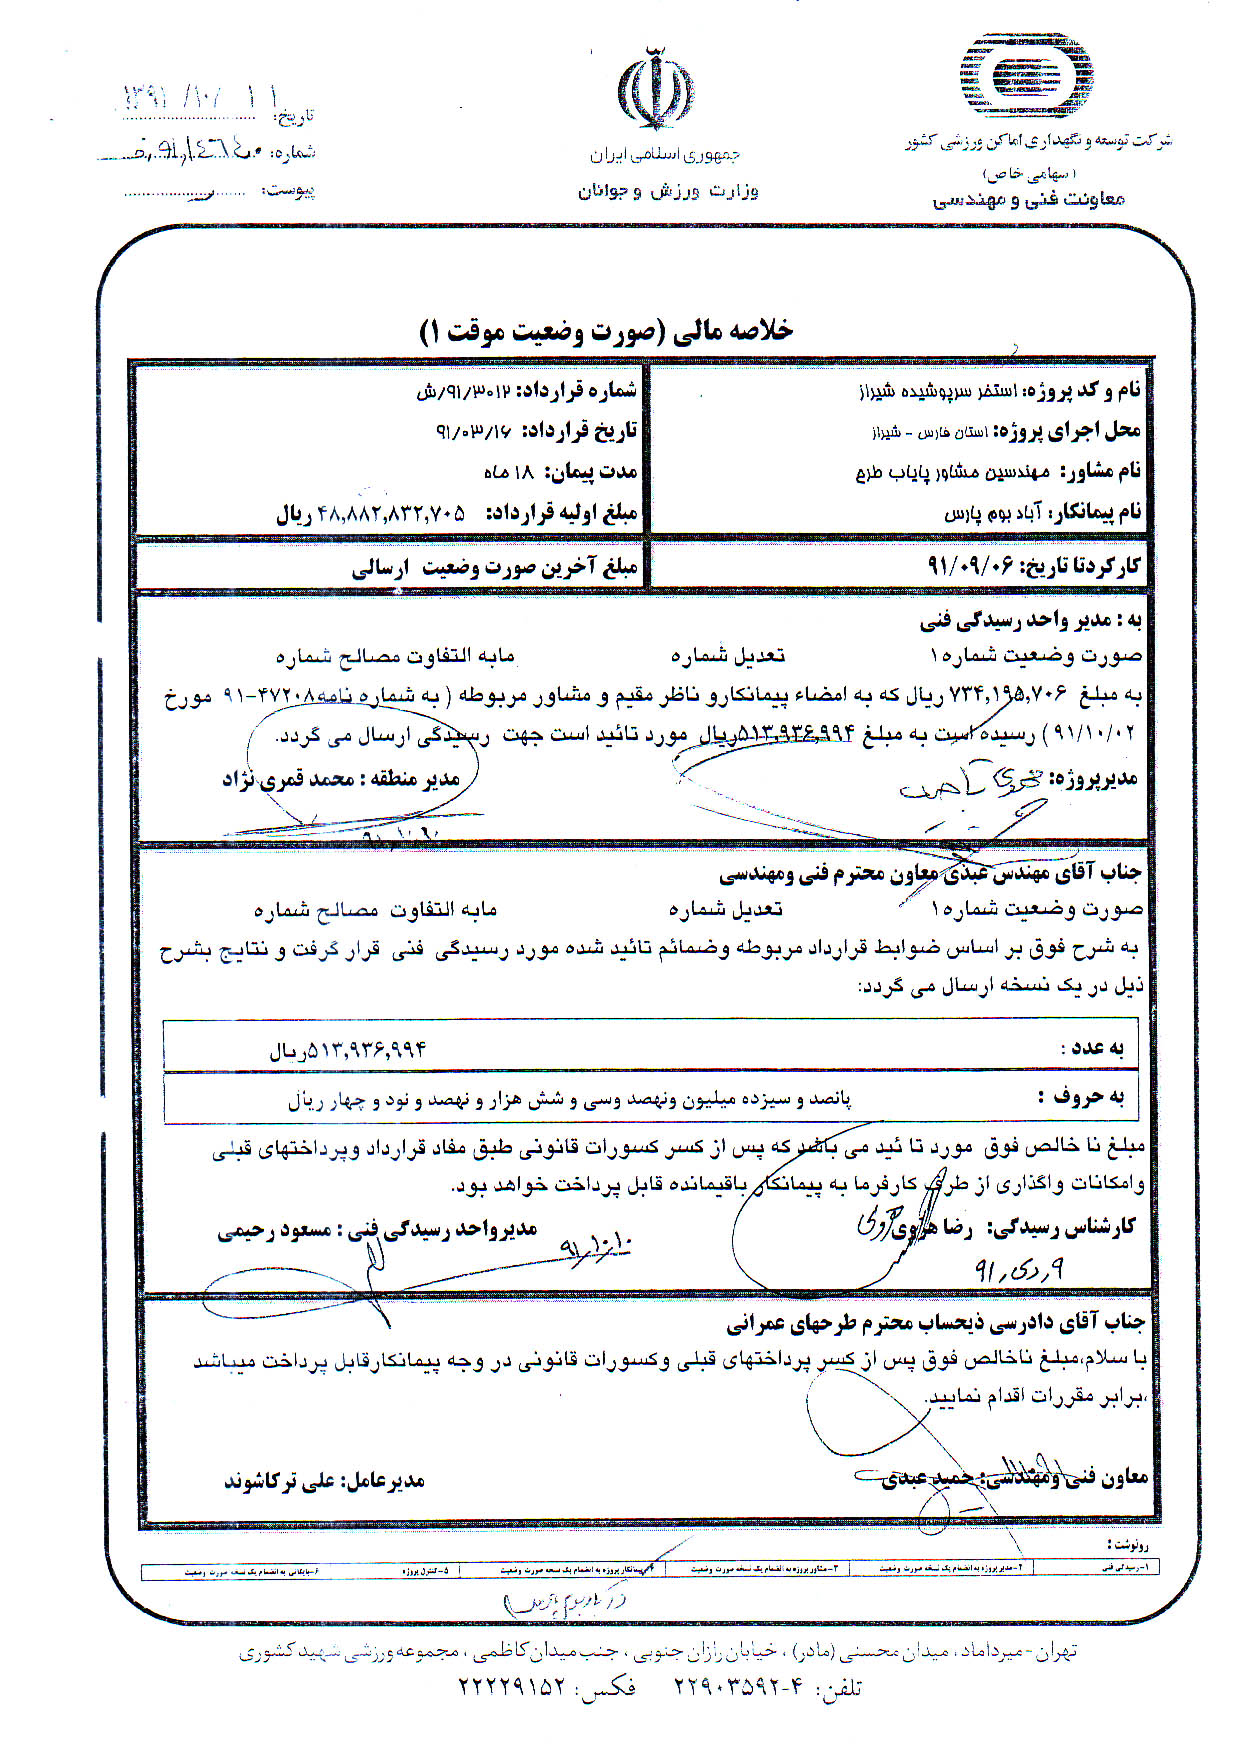 شرکت توسعه و نگهداری اماکن ورزشی کشور
(سهامی خاص)
معاونت فنی و مهندسی
جمهوری اسلامی ایران
وزارت ورزش و جوانان
تاریخ: ۱۳۹۱/۱۰/۱۱
شماره:
پیوست:
خلاصه مالی (صورت وضعیت موقت ۱)
نام و کد پروژه: استخر سرپوشیده شیراز
محل اجرای پروژه: استان فارس - شیراز
نام مشاور: مهندسین مشاور پایاب طرح
نام پیمانکار: آباد بوم پارس
شماره قرارداد: ۹۱/۳۰۱۲/ش
تاریخ قرارداد: ۹۱/۰۳/۱۶
مدت پیمان: ۱۸ ماه
مبلغ اولیه قرارداد: ۴۸,۸۸۲,۸۳۲,۷۰۵ ریال
کارکردتا تاریخ: ۹۱/۰۹/۰۶
مبلغ آخرین صورت وضعیت ارسالی
به : مدیر واحد رسیدگی فنی
صورت وضعیت شماره۱ تعدیل شماره مابه التفاوت مصالح شماره
به مبلغ ۷۳۴,۱۹۵,۷۰۶ ریال که به امضاء پیمانکارو ناظر مقیم و مشاور مربوطه ( به شماره نامه۴۷۲۰۸-۹۱ مورخ
۹۱/۱۰/۰۲) رسیده است به مبلغ ۵۱۳,۹۳۶,۹۹۴ریال مورد تائید است جهت رسیدگی ارسال می گردد.
مدیرپروژه:
مدیر منطقه : محمد قمری نژاد
جناب آقای مهندس عبدی معاون محترم فنی ومهندسی
صورت وضعیت شماره۱ تعدیل شماره مابه التفاوت مصالح شماره
به شرح فوق بر اساس ضوابط قرارداد مربوطه وضمائم تائید شده مورد رسیدگی فنی قرار گرفت و نتایج بشرح
ذیل در یک نسخه ارسال می گردد:
به عدد : ۵۱۳,۹۳۶,۹۹۴ریال
به حروف : پانصد و سیزده میلیون ونهصد وسی و شش هزار و نهصد و نود و چهار ریال
مبلغ نا خالص فوق مورد تا ئید می باشد که پس از کسر کسورات قانونی طبق مفاد قرارداد وپرداختهای قبلی
وامکانات واگذاری از طرف کارفرما به پیمانکار باقیمانده قابل پرداخت خواهد بود.
کارشناس رسیدگی: رضا هراوی
مدیرواحد رسیدگی فنی : مسعود رحیمی
۹۱/۱۰/۱۰
۹ دی ۹۱
جناب آقای دادرسی ذیحساب محترم طرحهای عمرانی
با سلام،مبلغ ناخالص فوق پس از کسر پرداختهای قبلی وکسورات قانونی در وجه پیمانکارقابل پرداخت میباشد
،برابر مقررات اقدام نمایید.
معاون فنی ومهندسی: حمید عبدی
مدیرعامل: علی ترکاشوند
رونوشت :
۱-رسیدگی فنی
۲-مدیر پروژه به انضمام یک نسخه صورت وضعیت
۳-مشاور پروژه به انضمام یک نسخه صورت وضعیت
۴-پیمانکار پروژه به انضمام یک نسخه صورت وضعیت
۵-کنترل پروژه
۶-بایگانی به انضمام یک نسخه صورت وضعیت
تهران-میرداماد، میدان محسنی (مادر) ، خیابان رازان جنوبی ، جنب میدان کاظمی ، مجموعه ورزشی شهید کشوری
تلفن: ۴-۲۲۹۰۳۵۹۲ فکس: ۲۲۲۲۹۱۵۲